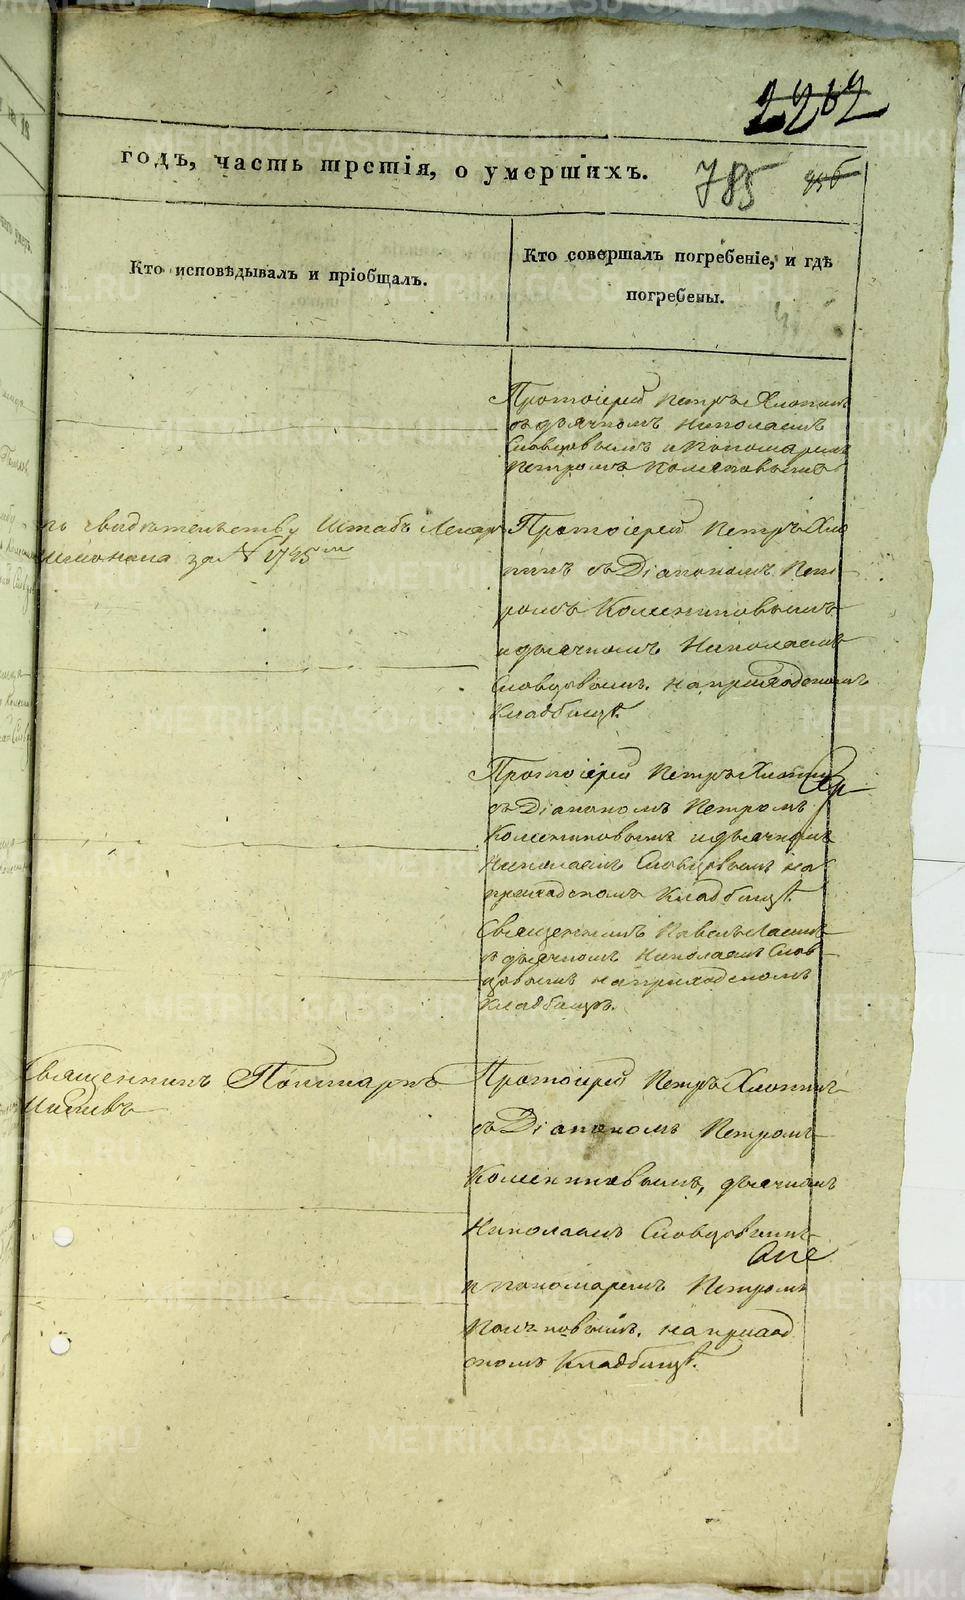 2262
годъ, часть третія, о умершихъ.
785
Кто исповѣдывалъ и пріобщалъ.
Кто совершалъ погребеніе, и гдѣ
погребены.
Протоіерей Петръ Хлопинъ
съ дьячкомъ Николаемъ
Словцовымъ и Пономаремъ
Петромъ
по свидѣтельству Штабъ Лекаря
за № 1795
Протоіерей Петръ Хло
пинъ съ Діакономъ Пет
ромъ
и дьячкомъ Николаемъ
Словцовымъ. на приходскомъ
Кладбищѣ.
Протоіерей Петръ Хлопинъ
съ Діакономъ Петромъ
и дьячкомъ
Николаемъ Словцовымъ на
приходскомъ Кладбищѣ.
Священникъ Павелъ
съ дьячкомъ Николаемъ Слов
цовымъ на приходскомъ
Кладбищѣ.
Священникъ
Протоіерей Петръ Хлопинъ
съ Діакономъ Петромъ
дьячкомъ
Николаемъ Словцовымъ
и пономаремъ Петромъ
на приход
скомъ Кладбищѣ.
METRIKI.GASO-URAL.RU